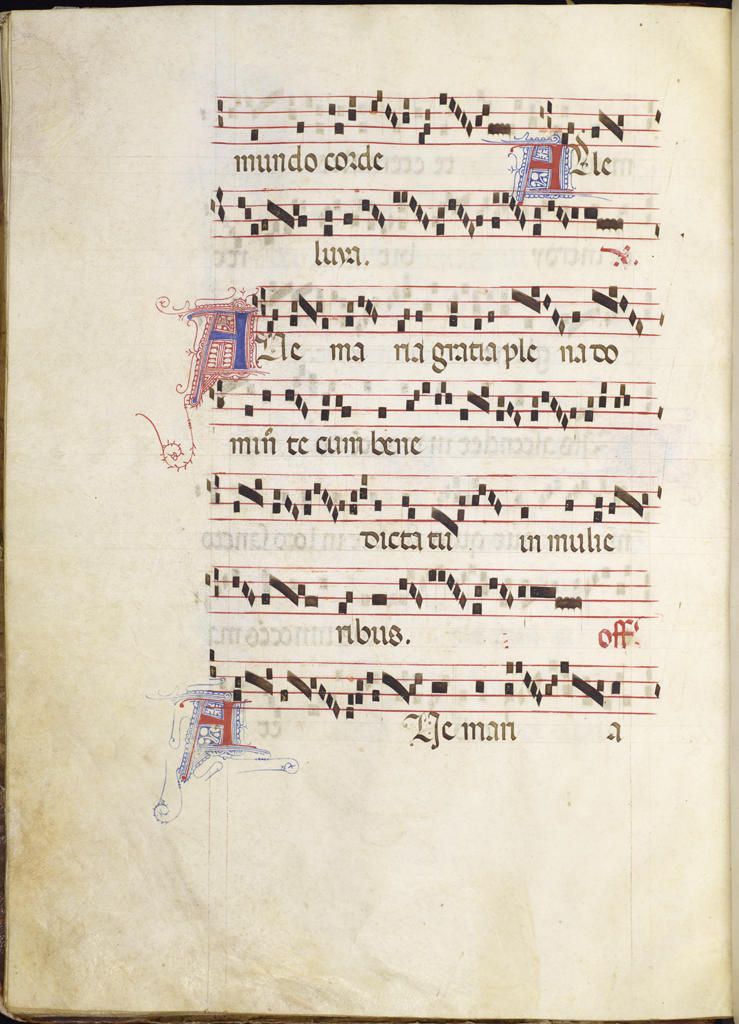 mundo corde Alle
luya. ℣.
AUe ma ria gratia ple na do
min̄ te cum bene
dicta tu in mulie
ribus. off̄
AUe mari a